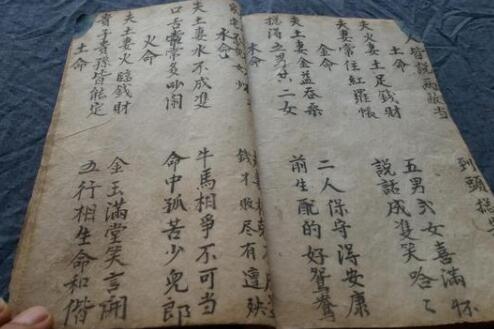 人皆說兩敵当
到頭
土命
夫火妻土足錢財
五男弍女喜滿怀
妻常住紅羅帳
說話成雙笑哈〻
金命
夫土妻金益
二人保守得安康
滿五男廿二女
前生配的好鴛鴦
木命
錢才散尽有遭殃
水命
夫土妻水不成雙
牛馬相爭不可当
口舌常常多吵闹
命中孤苦少兒郎
火命
夫土妻火臨錢財
金玉滿堂笑言開
貴子貴孫皆能定
五行相生命和偕
土命